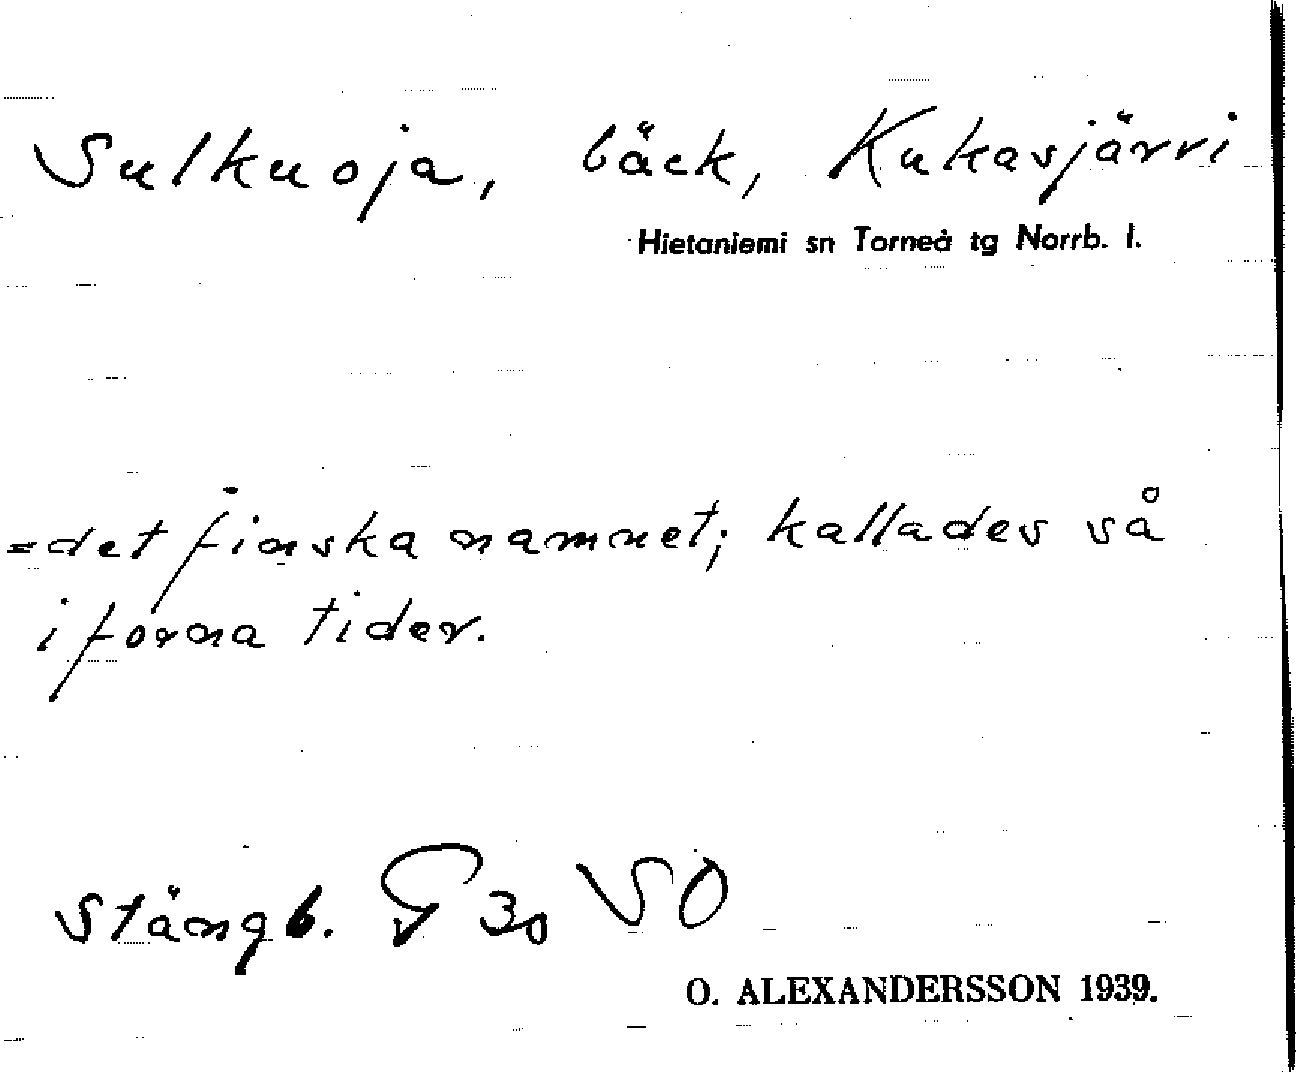 Sulkuoja, bäck, Kukasjärvi
Hietaniemi sn Torneå tg Norrb. l.
=det finska namnet; kallades så
i forna tider.
Stängb. 30 SO
O. ALEXANDERSSON 1939.